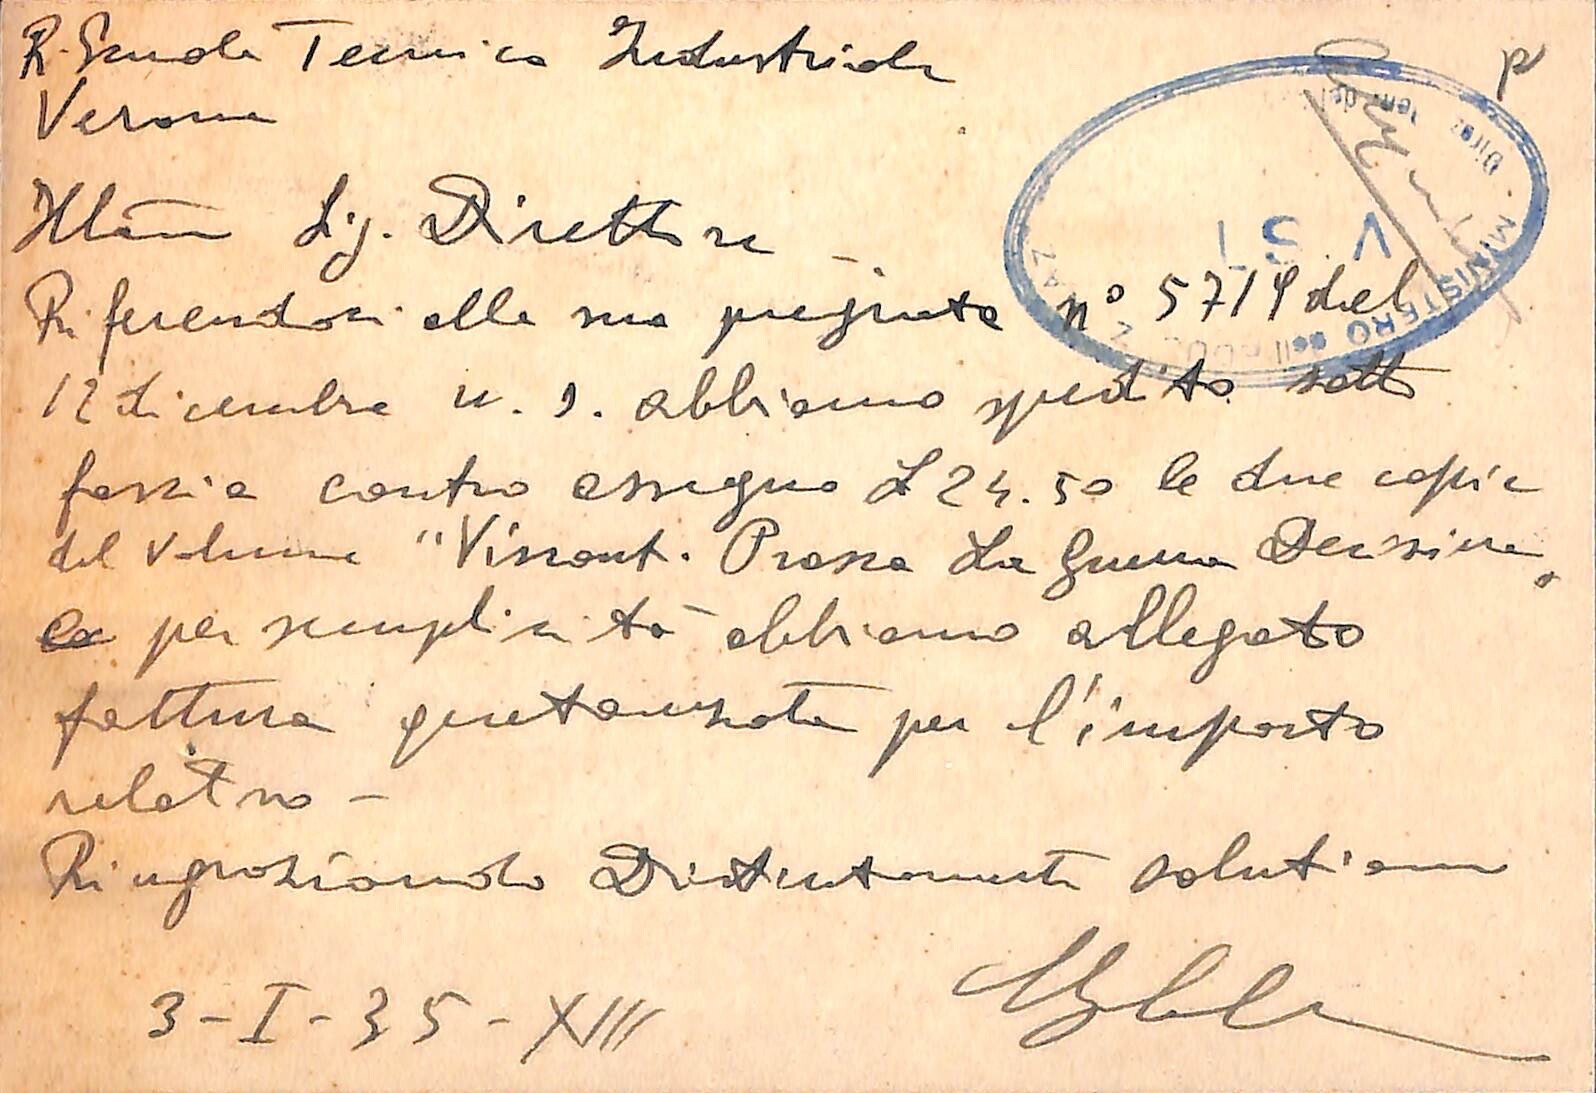 R. Scuola Tecnica Industriale
p
Verona
Ill.mo Sig. Direttore
Riferendoci alla sua pregiata n° 5719 del
12 dicembre u. s. abbiamo spedito sotto
fascia contro assegno L 24.50 le due copie
del volume "Visconti Prasca La Guerra Decisiva"
per semplicità abbiamo allegato
fattura quietanzata per l'importo
relativo -
Ringraziando Distintamente salutiamo
3-I-35-XIII
MINISTERO dell'
Diraz
VISTO